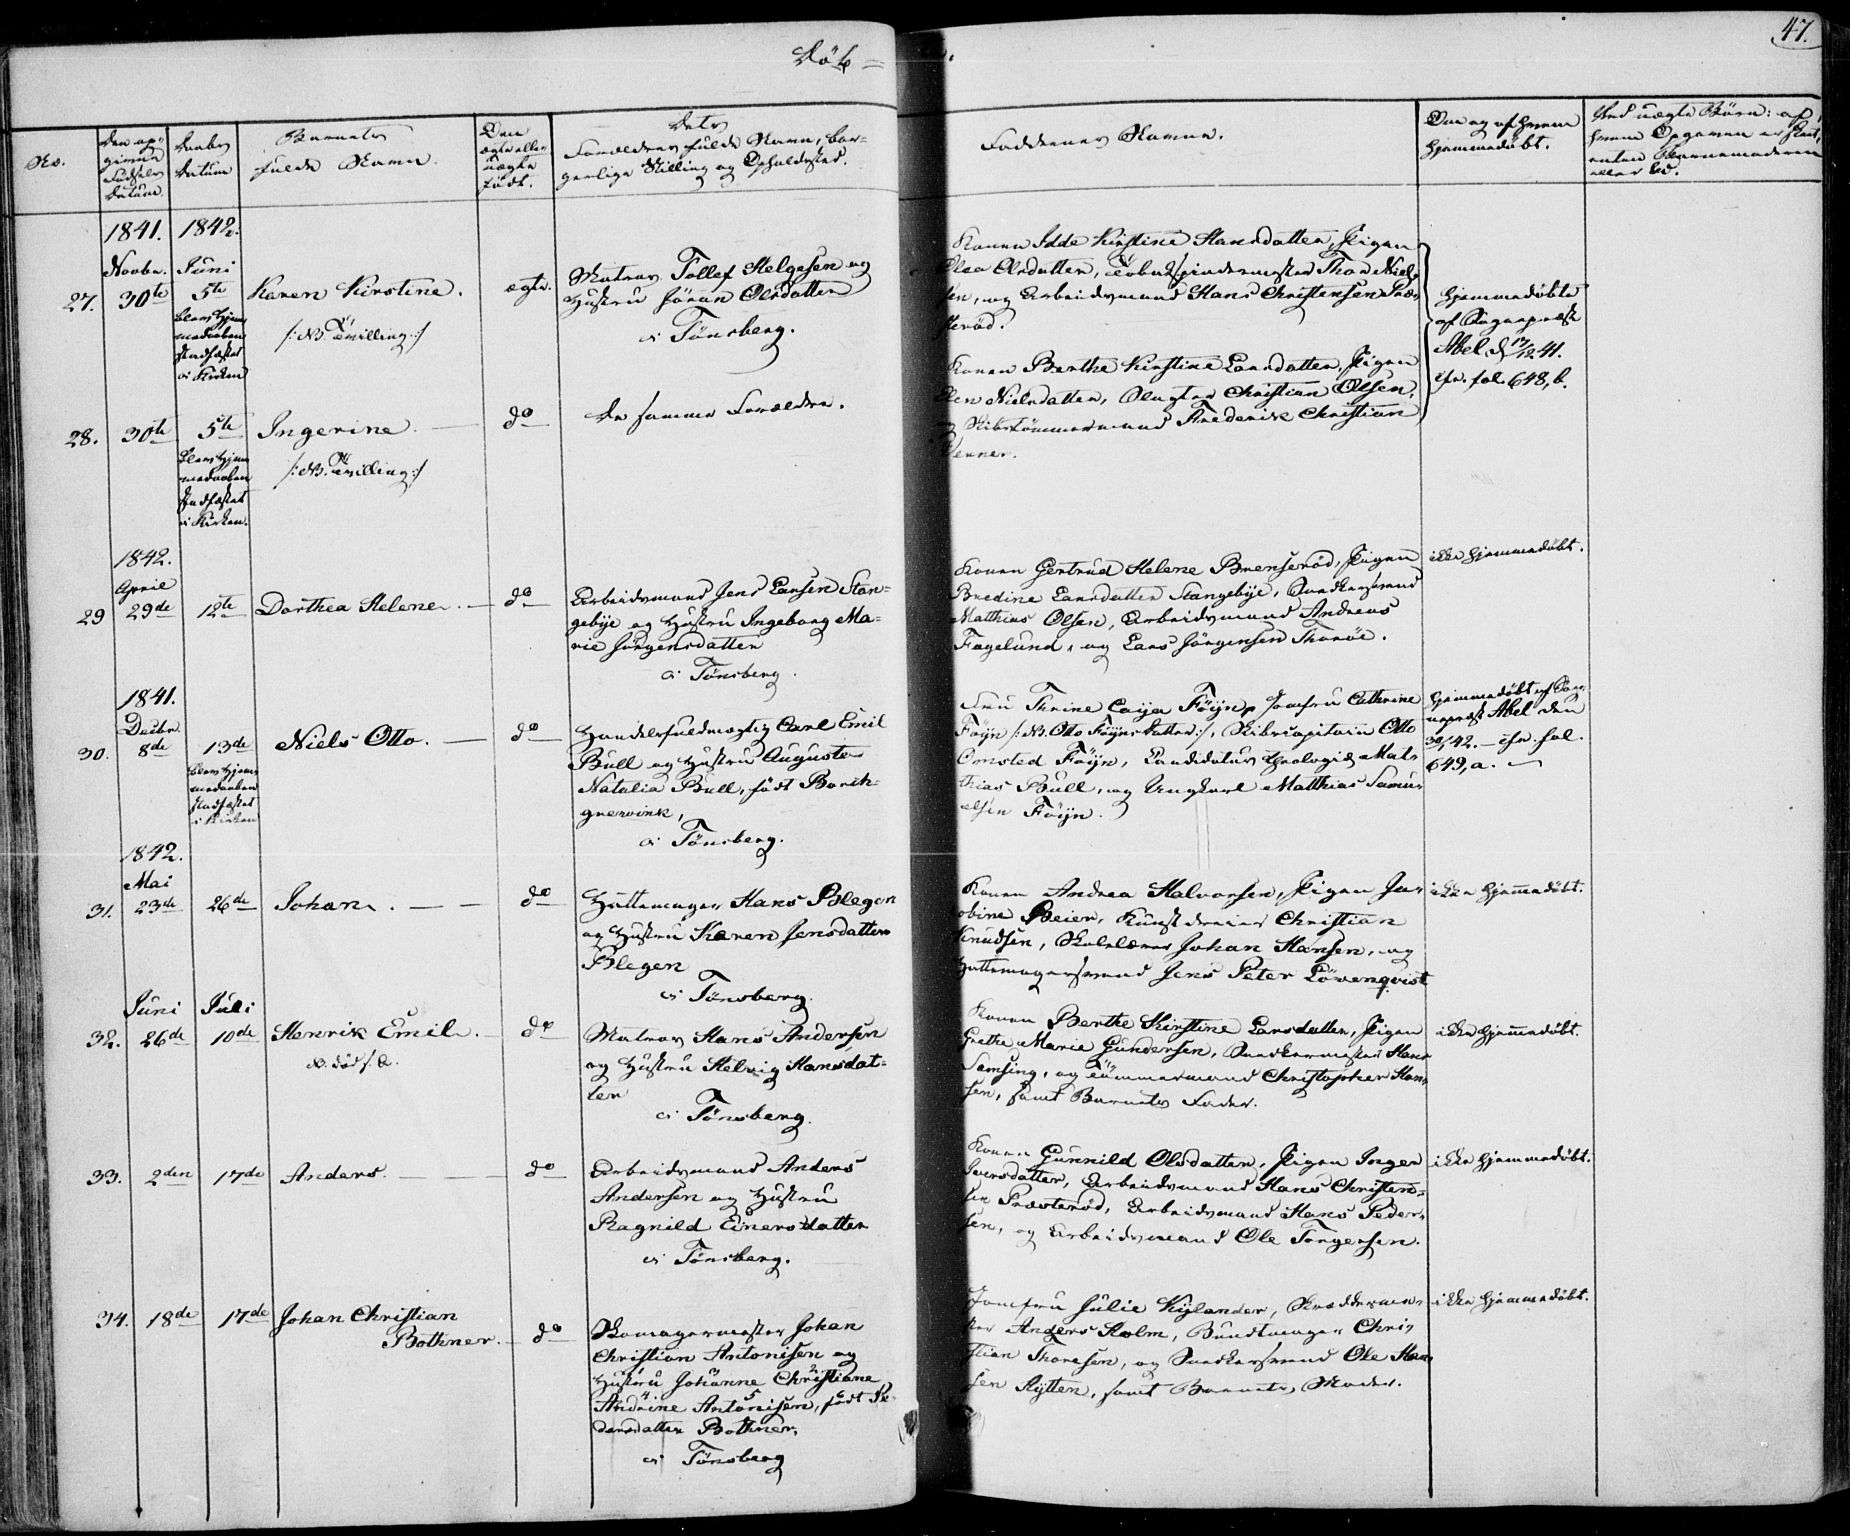 Døb-
47.
No.
Den op-
givne
Fødsels
Datum.
Daabs
Datum
Barnets
fulde Navn.
Om
ægte eller
uægte
født.
Dets
Forældres fulde Navn, bor-
gerlige Stilling og Opholdssted.
Faddernes Navne.
Om og af hvem
hjemmedøbt.
Ved uægte Børn: af
hvem Opgaven er skeet,
enten Barnemoderen
eller
1841.
1842.
Novbr.
Juni
27.
30te
5te
blev hjem-
medaaben
stadfæstet
i Kirken
Karen Kirstine.
/: NB. Tvilling :/
ægte.
Matros Tollef Helgesen og
Hustru Jøran Olsdatter
i Tønsberg.
Konen Idde Kirstine Hansdatter, Pigen
Olea Olsdatter, Tobakspindermester Thor Niel-
sen, og Arbeidsmand Hans Christensen Præ-
sterød.
hjemmedøbte
af Sognepræst
Abel d. 17/12 41.
cfr. fol. 648, b.
28.
30te
5te
blev hjem-
medaaben
stadfæstet
i Kirken.
Ingerine.
/: NB. Tvilling :/
do
De samme Forældre.
Konen Berthe Kirstine Larsdatter, Pigen
Elen Nielsdatter, Slagter Christian Olsen,
og Skibstømmermand Frederik Christian
Venner.
1842.
April
29
29de
12te
Dorthea Helene.
do
Arbeidsmand Jens Larsen Stan-
gebÿe og Hustru Ingeborg Ma-
rie Jørgensdatter
i Tønsberg.
Konen Gertrud Helene Brenserød, Pigen
Bredine Larsdatter Stangebÿe, Snedkersvend
Matthias Olsen, Arbeidsmand Andreas
Fagelund, og Lars Jørgensen Thorøe.
ikke hjemmedøbt.
1841.
Decbr.
30.
8de
13de
blev hjem-
medaaben
stadfæstet
i Kirken
Niels Otto.
do
Handelsfuldmægtig Carl Emil
Bull og Hustru Auguste
Natalia Bull, født Borch-
grevink,
i Tønsberg.
Fru Thrine Caija Føijn, Jomfru Cathrine
Føijn /: NB. Otto Føijns Datter :/, Skibscapitain Otto
Omsted Føijn, Candidatus theologiæ Mat-
thias Bull, og Ungkarl Matthias Samu-
elsen Føijn.
hjemmedøbt af Sog-
nepræst Abel den
30/1 42. – cfr. fol.
649, a.
1842.
Mai
31.
23de
26de
Johan.
do
Hattemager Hans Blegen
og Hustru Karen Jensdatter
Blegen
i Tønsberg.
Konen Andrea Halvorsen, Pigen Ja-
cobine Beier, Kunstdreier Christian
Knudsen, Skolelærer Johan Hansen, og
Hattemagersvend Jens Peter Løvenqvist
ikke hjemmedøbt.
Juni
Juli
32.
26de
10de
Henrik Emil.
do
Matros Hans Andersen
og Hustru Helvig Hansdat-
ter
i Tønsberg.
Konen Berthe Kirstine Larsdatter, Pigen
Grethe Marie Gundersen, Snedkermester Hans
Samsing, og Tømmermand Christopher Han-
sen, samt Barnets Fader.
ikke hjemmedøbt.
33.
2den
17de
Anders.
do
Arbeidsmand Anders
Andersen og Hustru
Ragnild Einersdatter
i Tønsberg.
Konen Gunnild Olsdatter, Pigen Inger
Iversdatter, Arbeidsmand Hans Christen-
sen Præsterød, Arbeidsmand Hans Peder-
sen, og Arbeidsmand Ole Torgersen.
ikke hjemmedøbt.
34.
18de
17de
Johan Christian
Bothner.
do
Skomagermester Johan
Christian Antonisen og
Hustru Johanne Christiane
Andrine Antonisen, født Pe-
dersdatter Bothner,
i Tønsberg
Jomfru Julie Kÿlander, Skreddermes-
ter Anders Holm, Bundtmager Chri-
stian Thoresen, og Snedkersvend Ole Han-
sen Rÿtter, samt Barnets Moder.
ikke hjemmedøbt.